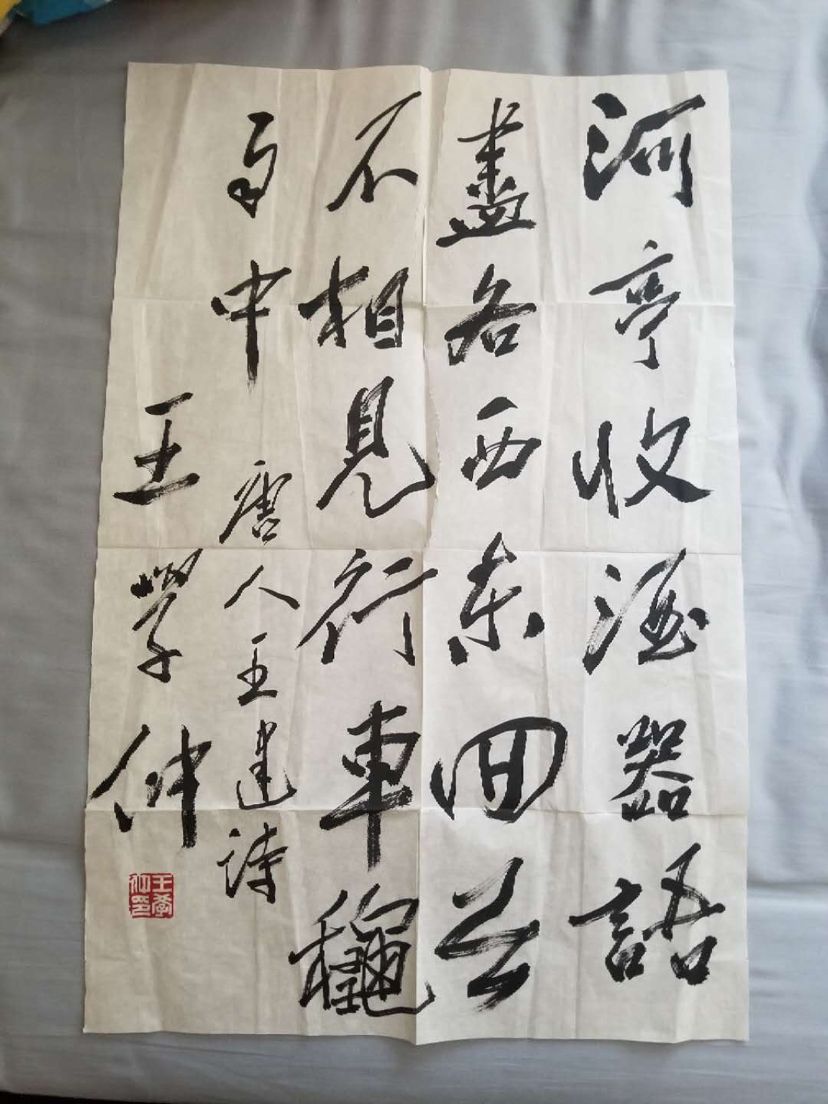 河亭收酒器語
盡各西東回首
不相見行車龝
雨中
唐人王建詩
王學仲
王學仲印